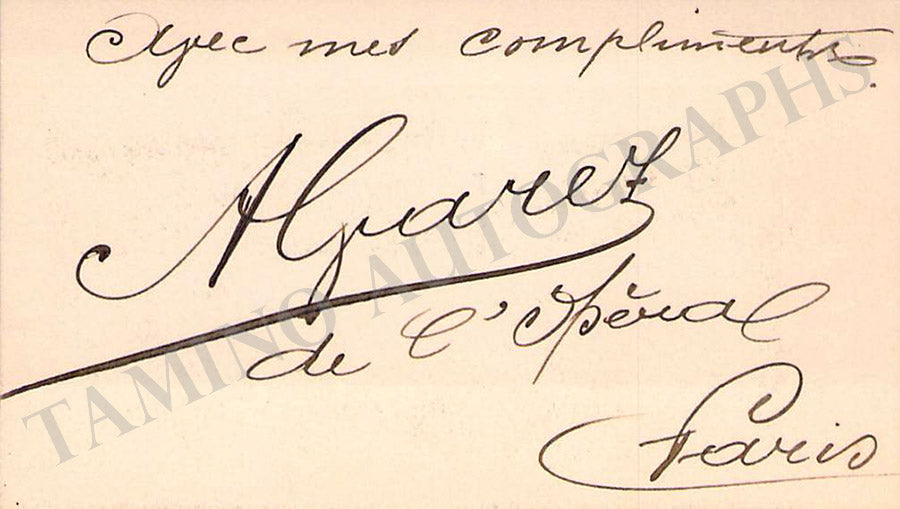 Avec mes compliments.
Alvarez
de l'Opéra
Paris
TAMINO AUTOGRAPHS